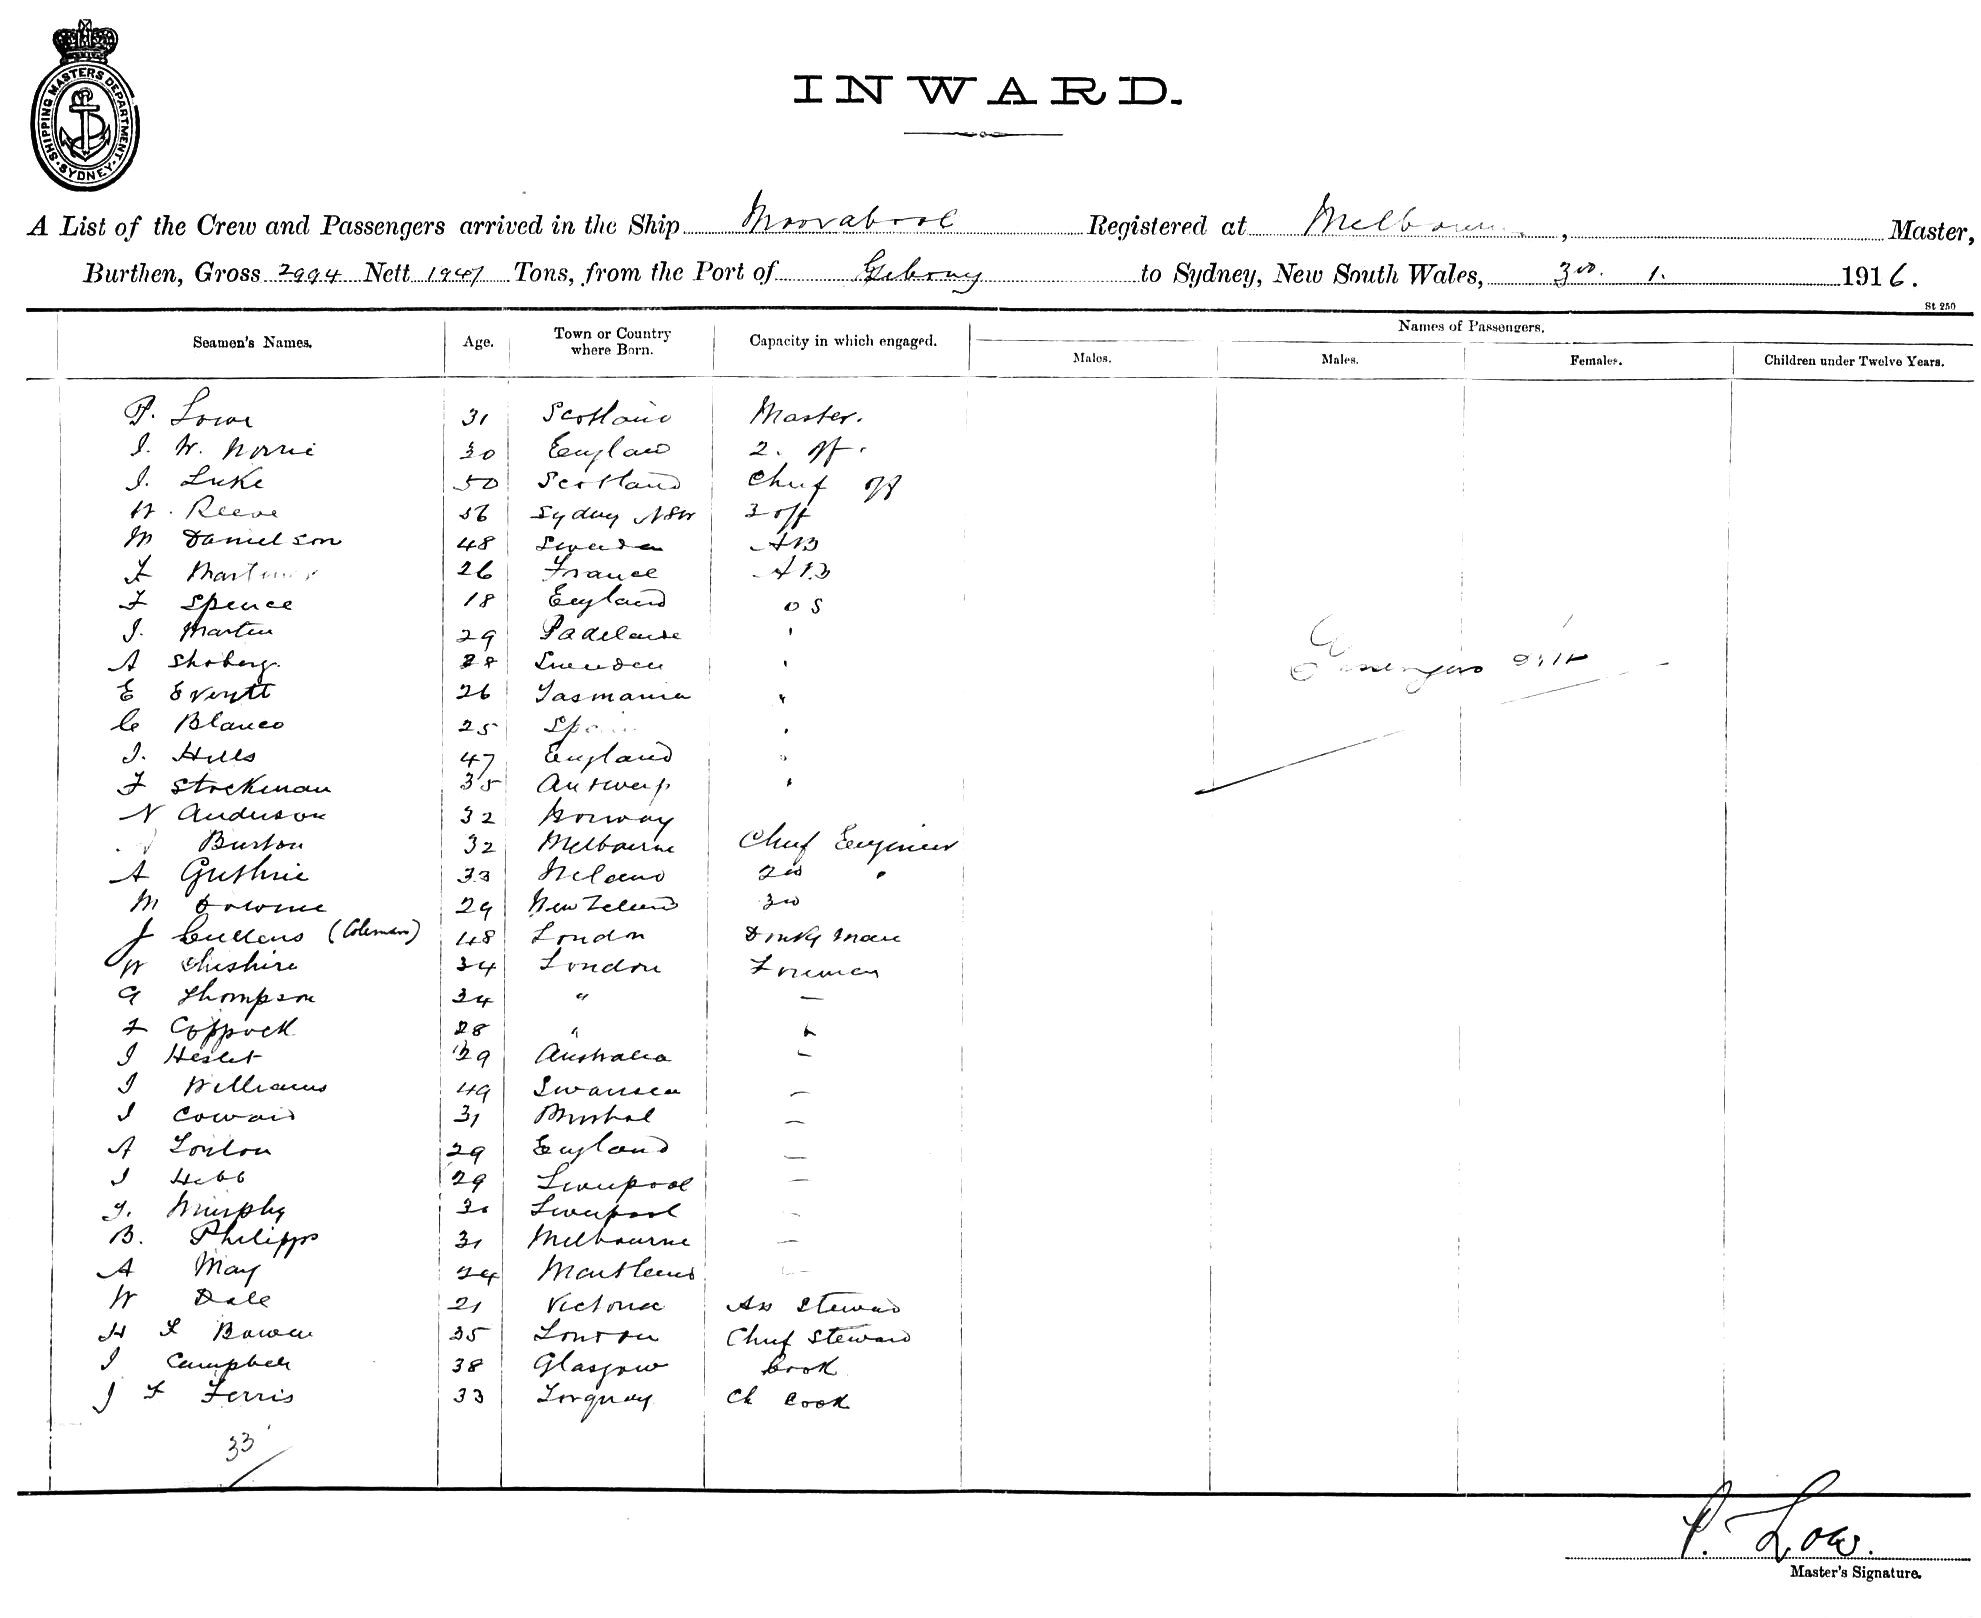 SHIPPING MASTERS DEPARTMENT
SYDNEY
INWARD.
A List of the Crew and Passengers arrived in the Ship Moorabool Registered at Melbourne, Master,
Burthen, Gross 2994 Nett 1947 Tons, from the Port of to Sydney, New South Wales, 3rd. 1. 1916.
St 250
Seamen's Names. Age. Town or Country where Born. Capacity in which engaged. Names of Passengers.
Males. Males. Females. Children under Twelve Years.
P. Lowe 31 Scotland Master.
J. W. Norrie 30 England 2. off.
J. Luke 50 Scotland Chief off
W. Reeve 56 Sydney NSW 3 off
M Danielson 48 Sweden AB
F 26 France AB
F Spence 18 England OS
J. Martin 29 P Adelaide "
A Shoberg. 28 Sweden "
E Everett 26 Tasmania "
C Blanco 25 Spain "
J. Hills 47 England "
F Stockman 35 Antwerp "
N Anderson 32 Norway
Burton 32 Melbourne Chief Engineer
A Guthrie 33 Ireland 2nd "
M Downie 29 New Zeland 3rd
J Cullens (Coleman) 48 London Donky Man
W Cheshire 34 London Fireman
G Thompson 34 " —
F Coppock 28 " "
J Heslet 29 Australia —
J Williams 49 Swansea —
J Coward 31 Bristol —
A 29 England —
J Hebb 29 Liverpool —
J. Murphy 30 Liverpool —
B. Philipps 31 Melbourne —
A May 24 —
W Dale 21 Victoria Ass Steward
H F Bowen 35 London Chief Steward
J Campbell 38 Glasgow Cook
J F Ferris 33 Torquay Ch Cook
Passengers Nil
33
P. Low.
Master's Signature.